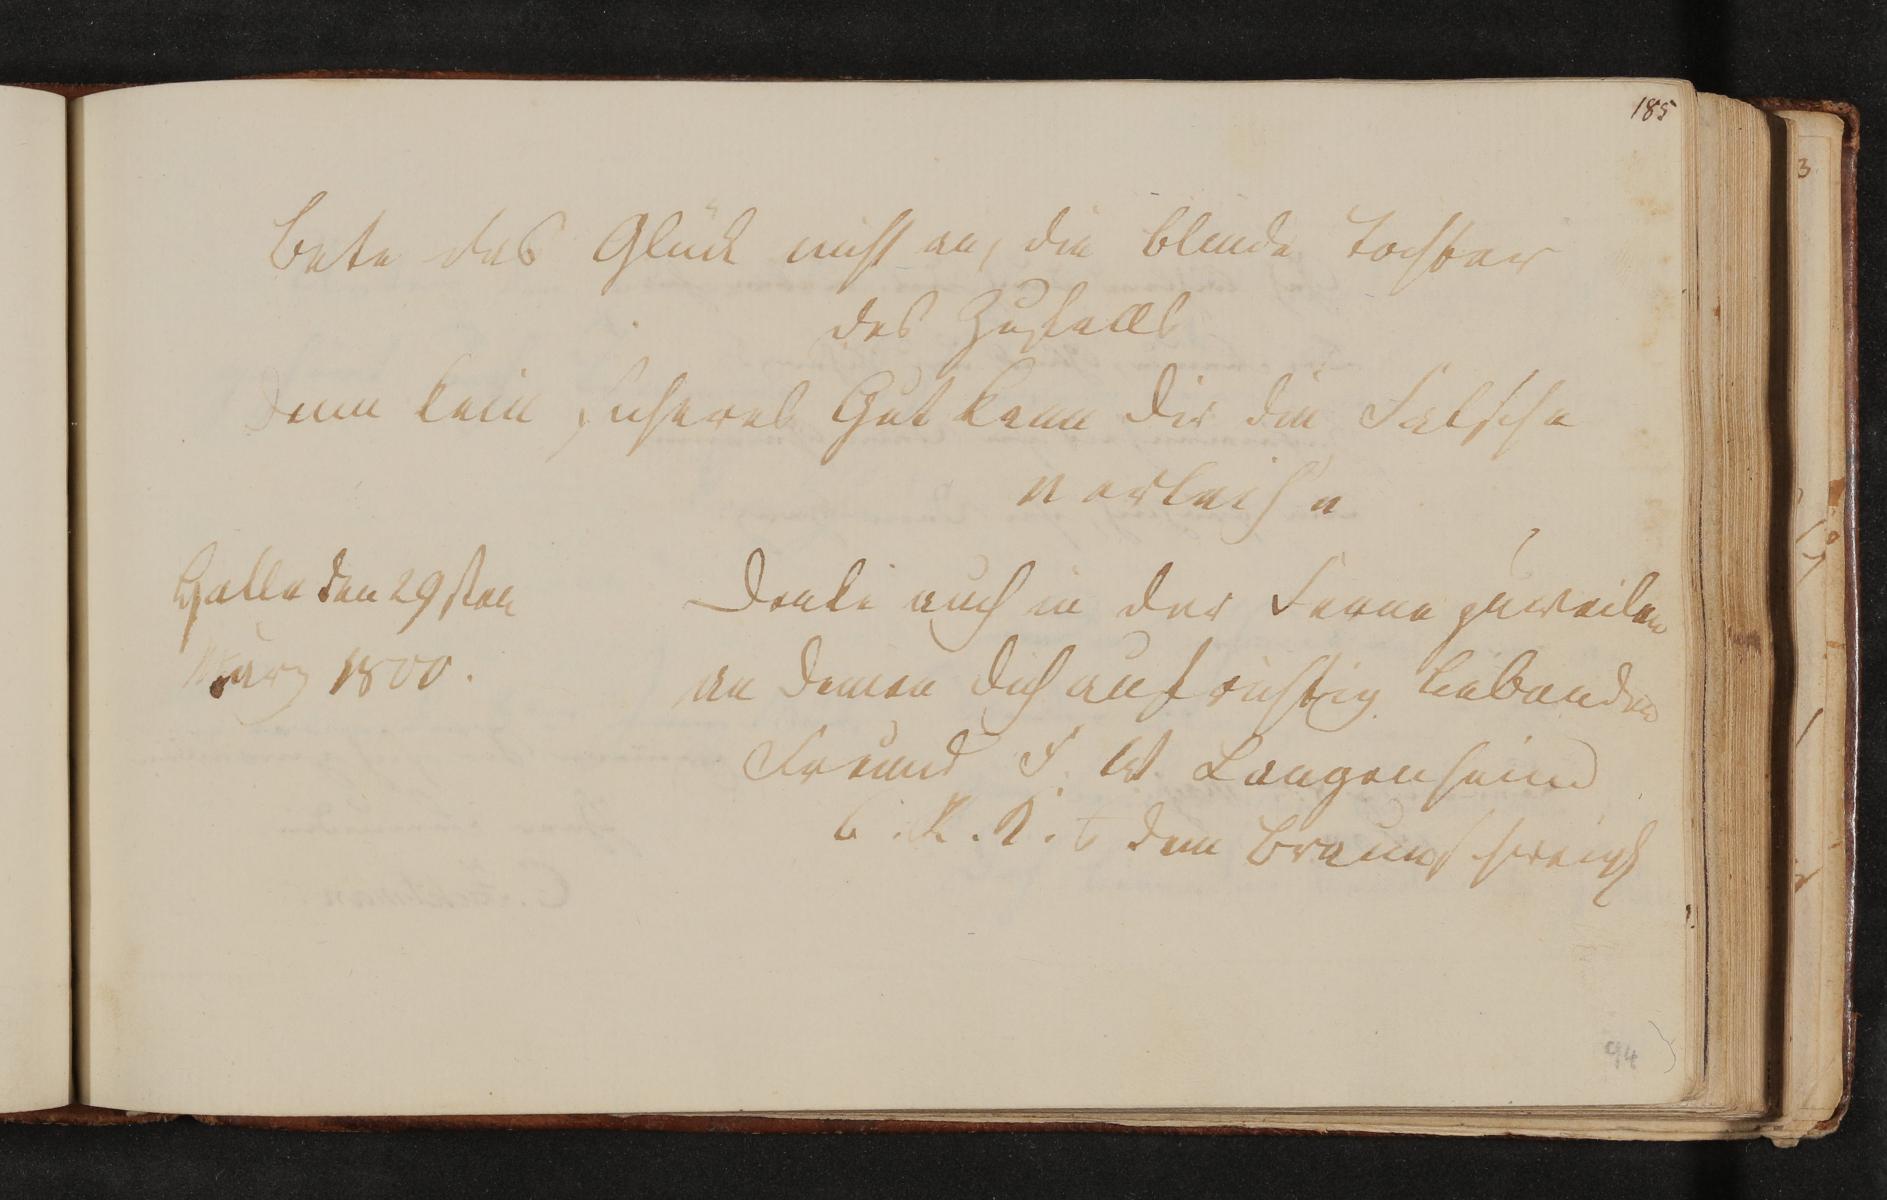 185
Bete das Glück nicht an, die blinde Tochter
des Zufalls
Denn kein sicheres Gut kann dir die Falsche
verleihe
Halle den 29sten
März 1800.
Denke auch in der Ferne zuweilen
an deinen dich aufrichtig liebenden
Freund F. W. Langenheim
d. R. B. aus dem Braunschweig
94
3